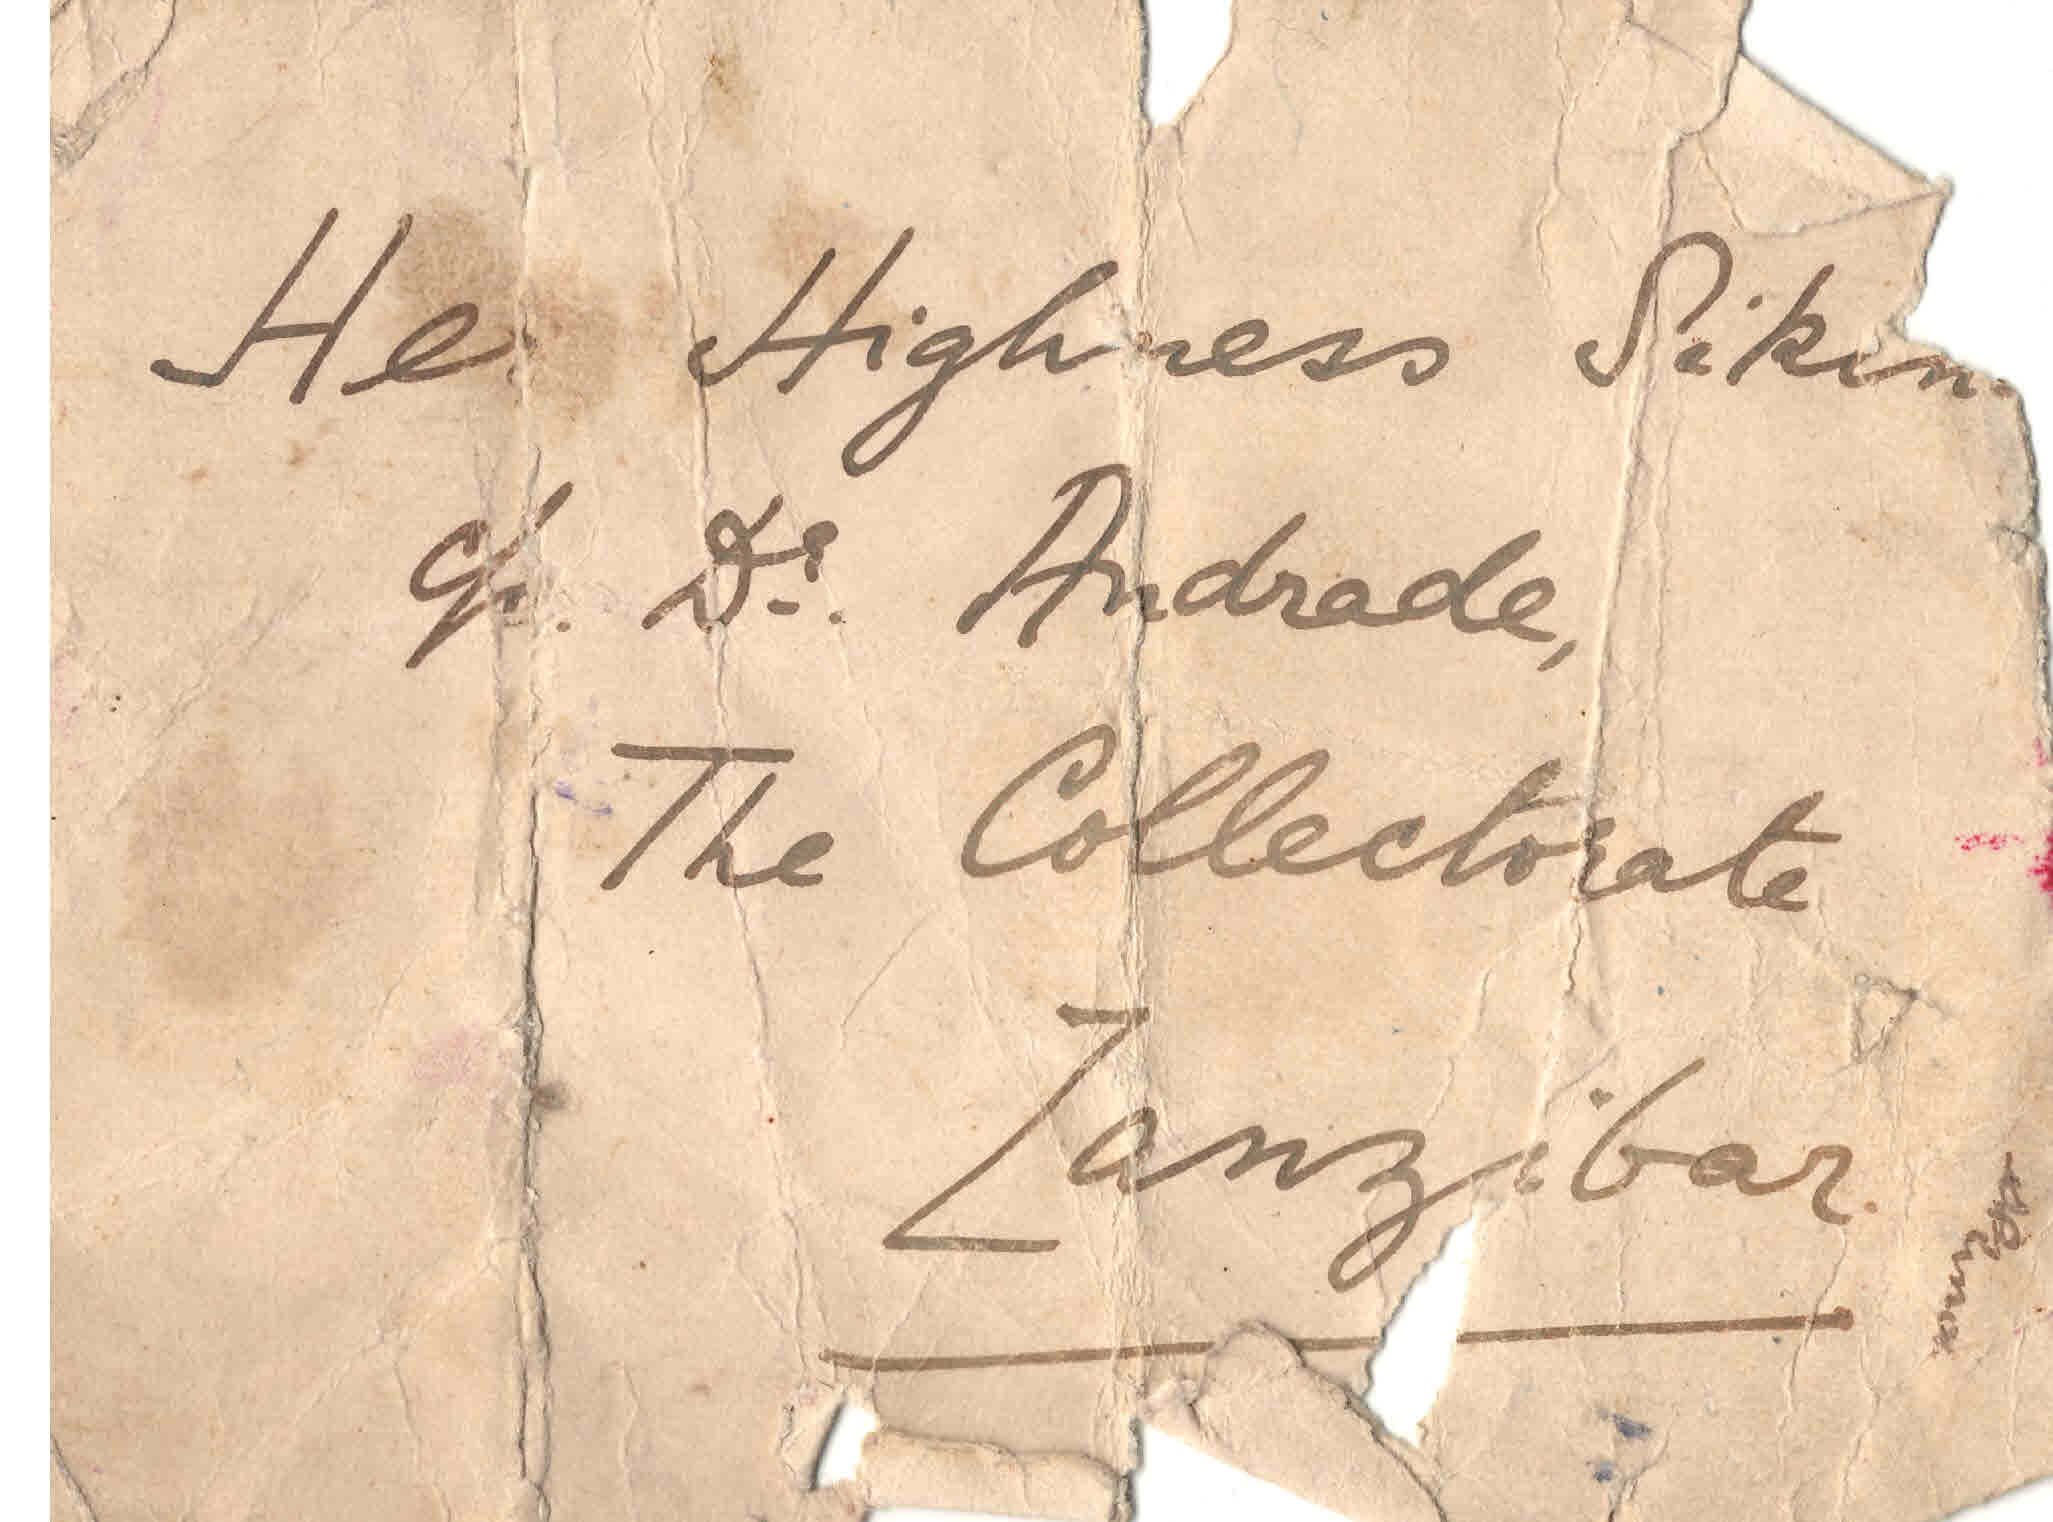 Her Highness Sikin
c/o. Dr. Andrade,
The Collectorate
Zanzibar.